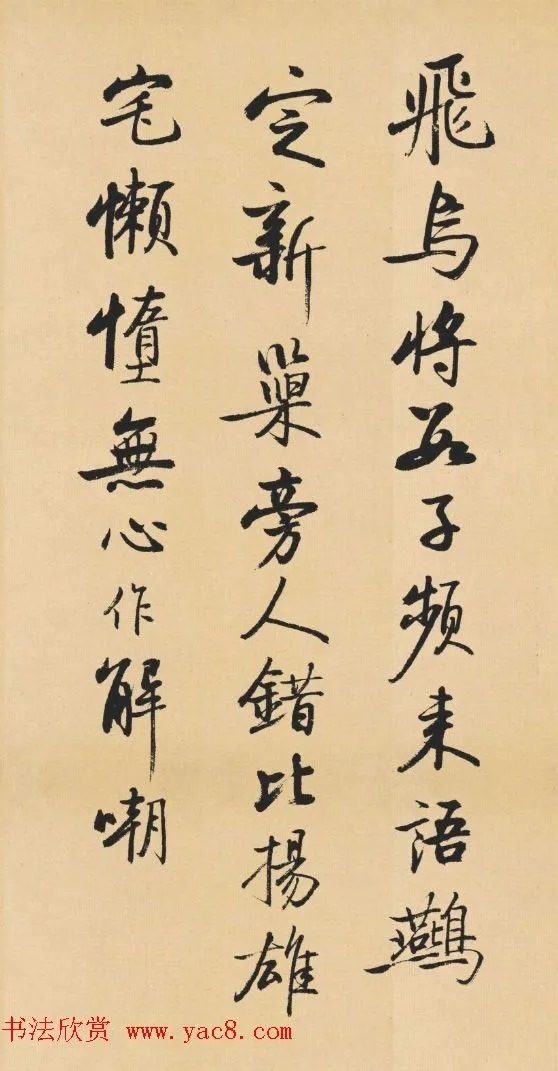 飛烏將數子頻来語鷰
定新巢旁人錯比揚雄
宅懶惰無心作解嘲
书法欣赏 www.yac8.com